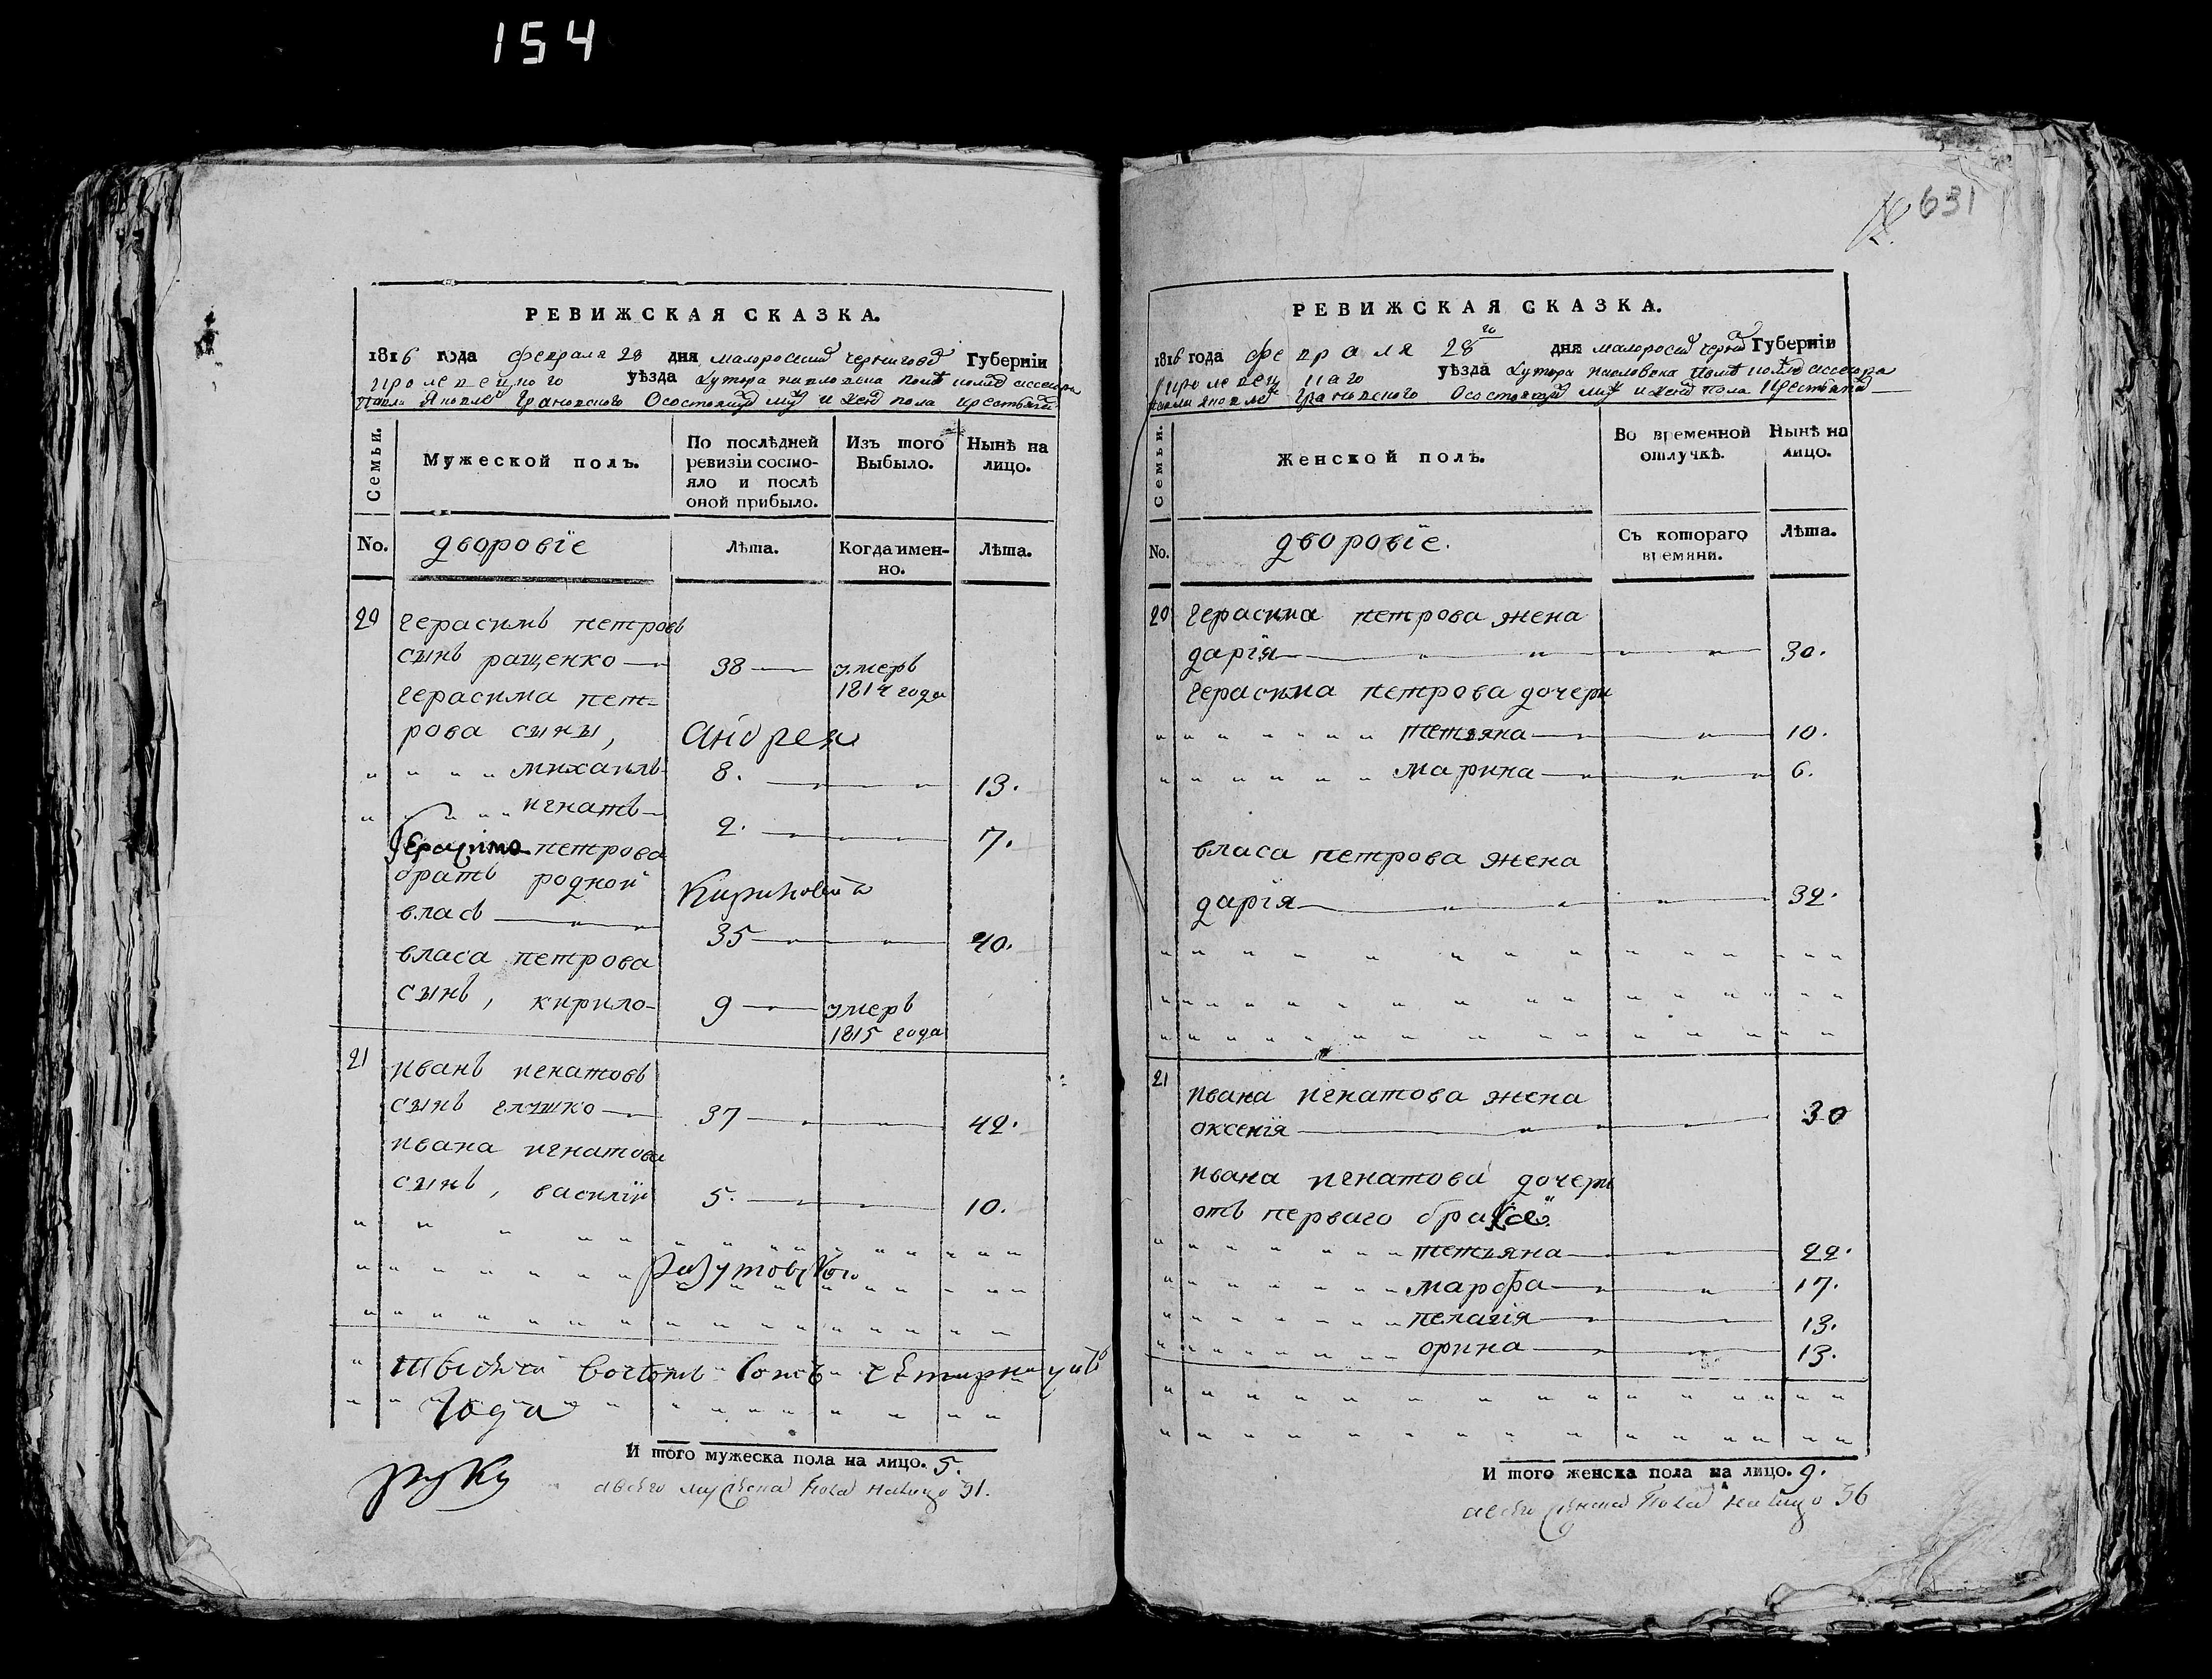 154
631
РЕВИЖСКАЯ СКАЗКА.
1816 года февраля 28 дня малоросий чернигово Губерніи
кролевецкого уѣзда хутора павловка
Грановского Осостоящих муж и жен пола крестьян
Семьи.
Мужеской полъ.
По послѣдней ревизіи состояло и послѣ оной прибыло.
Изъ того Выбыло.
Нынѣ на лицо.
No.
дворовїе
Лѣта.
Когда именно.
Лѣта.
20 герасимъ петровъ
сынъ ращенко 38 умеръ
1814 года
герасима пет=
рова сыны, андрея
михаилъ 8. 13.
игнатъ 2. 7.
Герасима петрова
братъ родной
власъ 35 40.
власа петрова
сынъ, кирило 9 умеръ
1815 года
21 иванъ игнатовъ
сынъ глушко 37 42.
ивана игнатова
сынъ, василїй 5. 10.
года
руку
И того мужеска пола на лицо. 5.
а всего мужеска пола налицо 31.
РЕВИЖСКАЯ СКАЗКА.
1816 года февраля 28го дня малоросий Губерніи
кролевецкаго уѣзда хутора павловка
Грановского Осостоящих муж и жен пола крестьян
Семьи.
Женской полъ.
Во временной отлучкѣ.
Нынѣ на лицо.
No.
дворовїе.
Съ котораго времяни.
Лѣта.
20 герасима петрова жена
дарїя 30.
герасима петрова дочери
тетяна 10.
марина 6.
власа петрова жена
дарїя 32.
21 ивана игнатова жена
оксенїя 30
ивана игнатова дочери
отъ перваго брака
тетьяна 22.
марфа 17.
пелагїя 13.
орина 13.
И того женска пола на лицо. 9.
а всего женска пола налицо 36